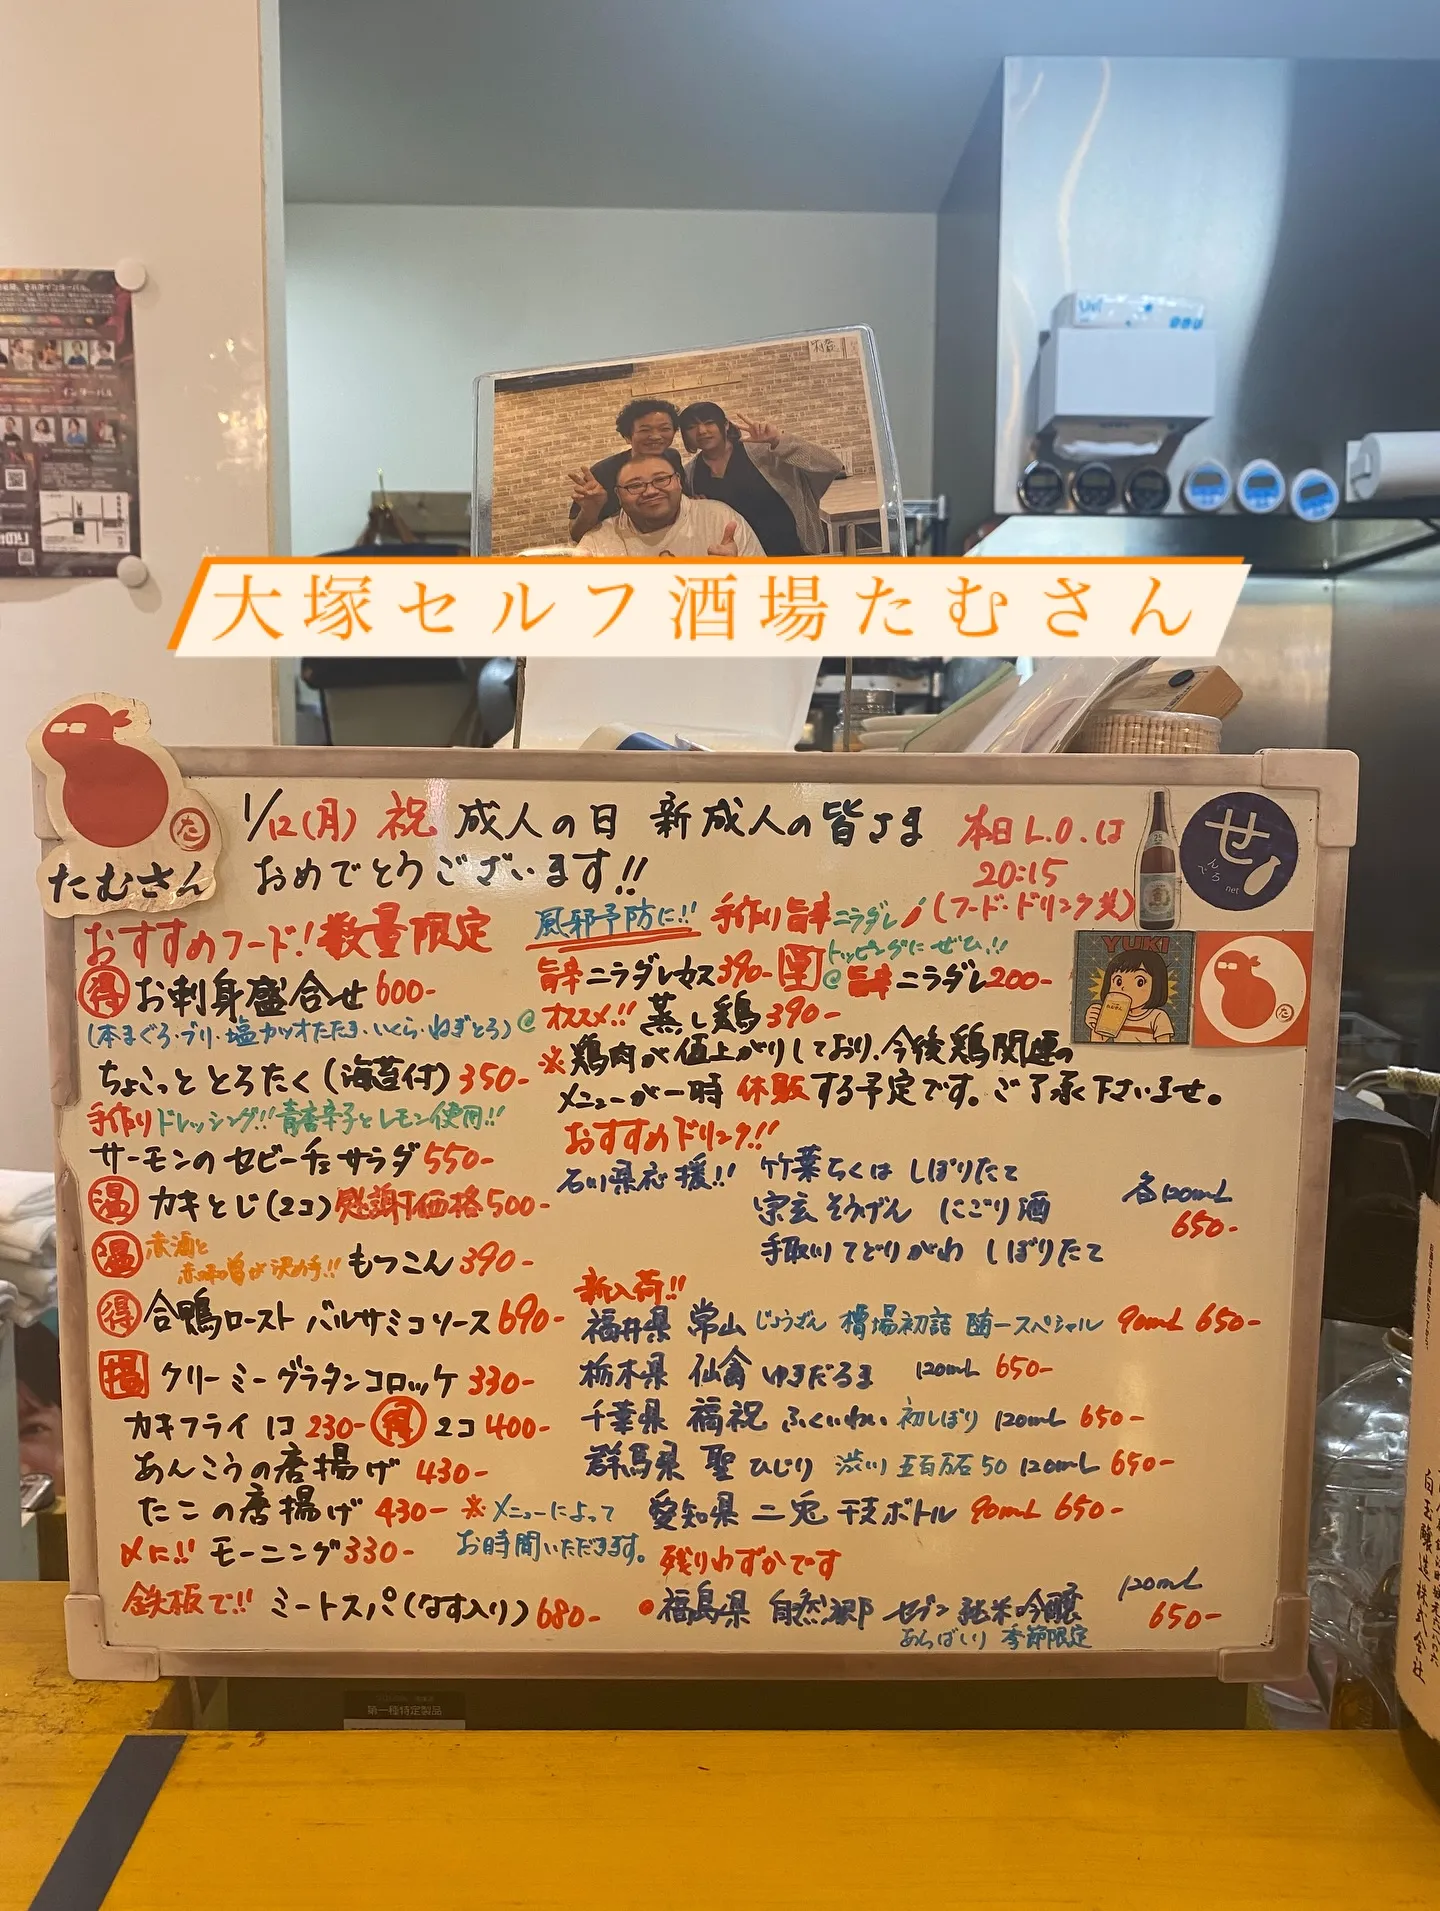 大塚セルフ酒場たむさん
たむさん
1/12(月) 祝 成人の日 新成人の皆さま
おめでとうございます!!
本日L.O.は
20:15
(フード・ドリンク共)
せ
でんろ
net
YUKI
おすすめフード!数量限定
得 お刺身盛合せ 600-
(本まぐろ・ブリ・塩カツオたたき・いくら・ねぎとろ)
ちょこっと とろたく(海苔付) 350-
手作りドレッシング!!青唐辛子とレモン使用!!
サーモンのセビーチェサラダ 550-
温 カキとじ(2コ) 感謝価格 500-
温 赤酒と
赤味噌が決め手!! もつこん 390-
得 合鴨ロースト バルサミコソース 690-
揚 クリーミーグラタンコロッケ 330-
カキフライ 1コ 230- 得 2コ 400-
あんこうの唐揚げ 430-
たこの唐揚げ 430- ※メニューによって
お時間いただきます。
〆に!! モーニング 330-
鉄板で!! ミートスパ(なす入り) 680-
風邪予防に!! 手作り旨辛ニラダレ
トッピングにぜひ!!
旨辛ニラダレカス 390- 単 @旨辛ニラダレ 200-
@オススメ!! 蒸し鶏 390-
※鶏肉が値上がりしており、今後鶏関連の
メニューが一時休販する予定です。ご了承下さいませ。
おすすめドリンク!!
石川県応援!! 竹葉 ちくは しぼりたて
宗玄 そうげん にごり酒
手取川 てどりがわ しぼりたて
各120mL
650-
新入荷!!
福井県 常山 じょうざん 槽場初詰 直一スペシャル 90mL 650-
栃木県 仙禽 ゆきだるま 120mL 650-
千葉県 福祝 ふくいわい 初しぼり 120mL 650-
群馬県 聖 ひじり 渋川 五百万石50 120mL 650-
愛知県 二兎 干支ボトル 90mL 650-
残りわずかです
●福島県 自然郷 セブン 純米吟醸
あらばしり 季節限定
120mL
650-
第一種特定製品